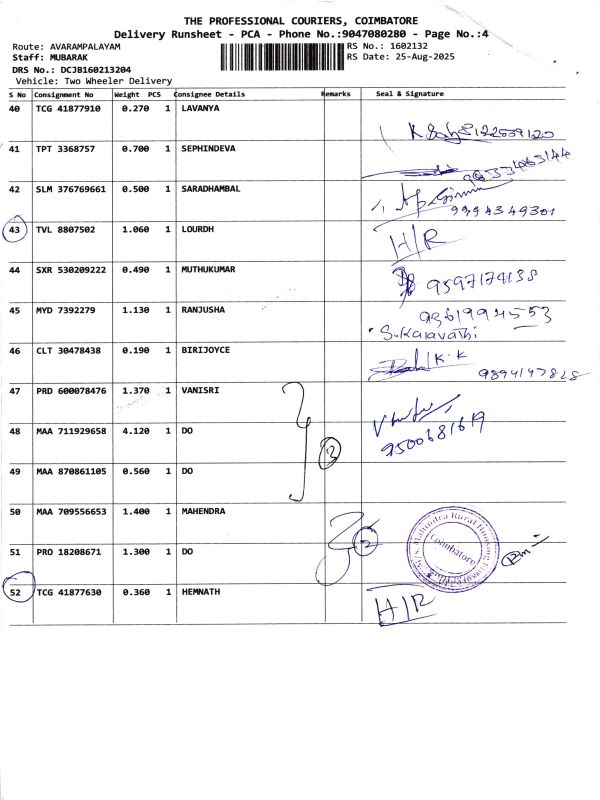 THE PROFESSIONAL COURIERS, COIMBATORE
Delivery Runsheet - PCA - Phone No.:9047080280 - Page No.:4
Route: AVARAMPALAYAM RS No.: 1602132
Staff: MUBARAK RS Date: 25-Aug-2025
DRS No.: DCJB160213204
Vehicle: Two Wheeler Delivery
S No Consignment No Weight PCS Consignee Details Remarks Seal & Signature
40 TCG 41877910 0.270 1 LAVANYA
41 TPT 3368757 0.700 1 SEPHINDEVA
42 SLM 376769661 0.500 1 SARADHAMBAL
9994349301
43 TVL 8807502 1.060 1 LOURDH H/R
44 SXR 530209222 0.490 1 MUTHUKUMAR 9597174138
45 MYD 7392279 1.130 1 RANJUSHA 9361994553
S.Kalavathi
46 CLT 30478438 0.190 1 BIRIJOYCE K.K
9894147828
47 PRD 600078476 1.370 1 VANISRI
48 MAA 711929658 4.120 1 DO 9500681619
3
49 MAA 870861105 0.560 1 DO
50 MAA 709556653 1.400 1 MAHENDRA
2
M/s. Mahindra Rural Housing Finance
Coimbatore
51 PRO 18208671 1.300 1 DO
52 TCG 41877630 0.360 1 HEMNATH H/R